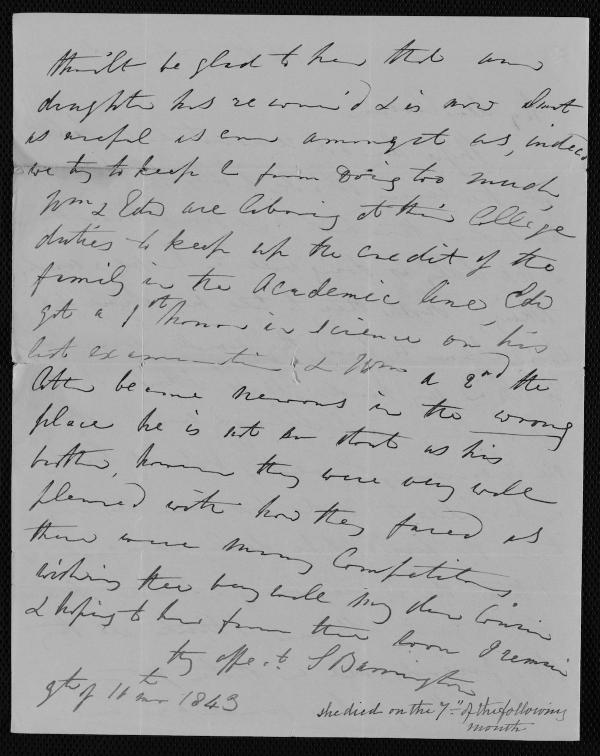 thou'lt be glad to hear that our
daughter has recover'd & is now almost
as useful as ever amongst us, indeed
we try to keep her from doing too much,
Wm & Edw are laboring at their College
duties to keep up the credit of the
family in the Academic line, Edw
got a 1st honor in Science on his
last examination & Wm a 2nd the
latter became nervous in the wrong
place he is not so stout as his
brother, however they were very well
pleased with how they fared as
there were many Competitors
wishing thee very well my dear Cousin
& hoping to hear from thee soon I remain
thy affect. S Barrington
9th of 11th mo 1843
she died on the 7th of the following
month